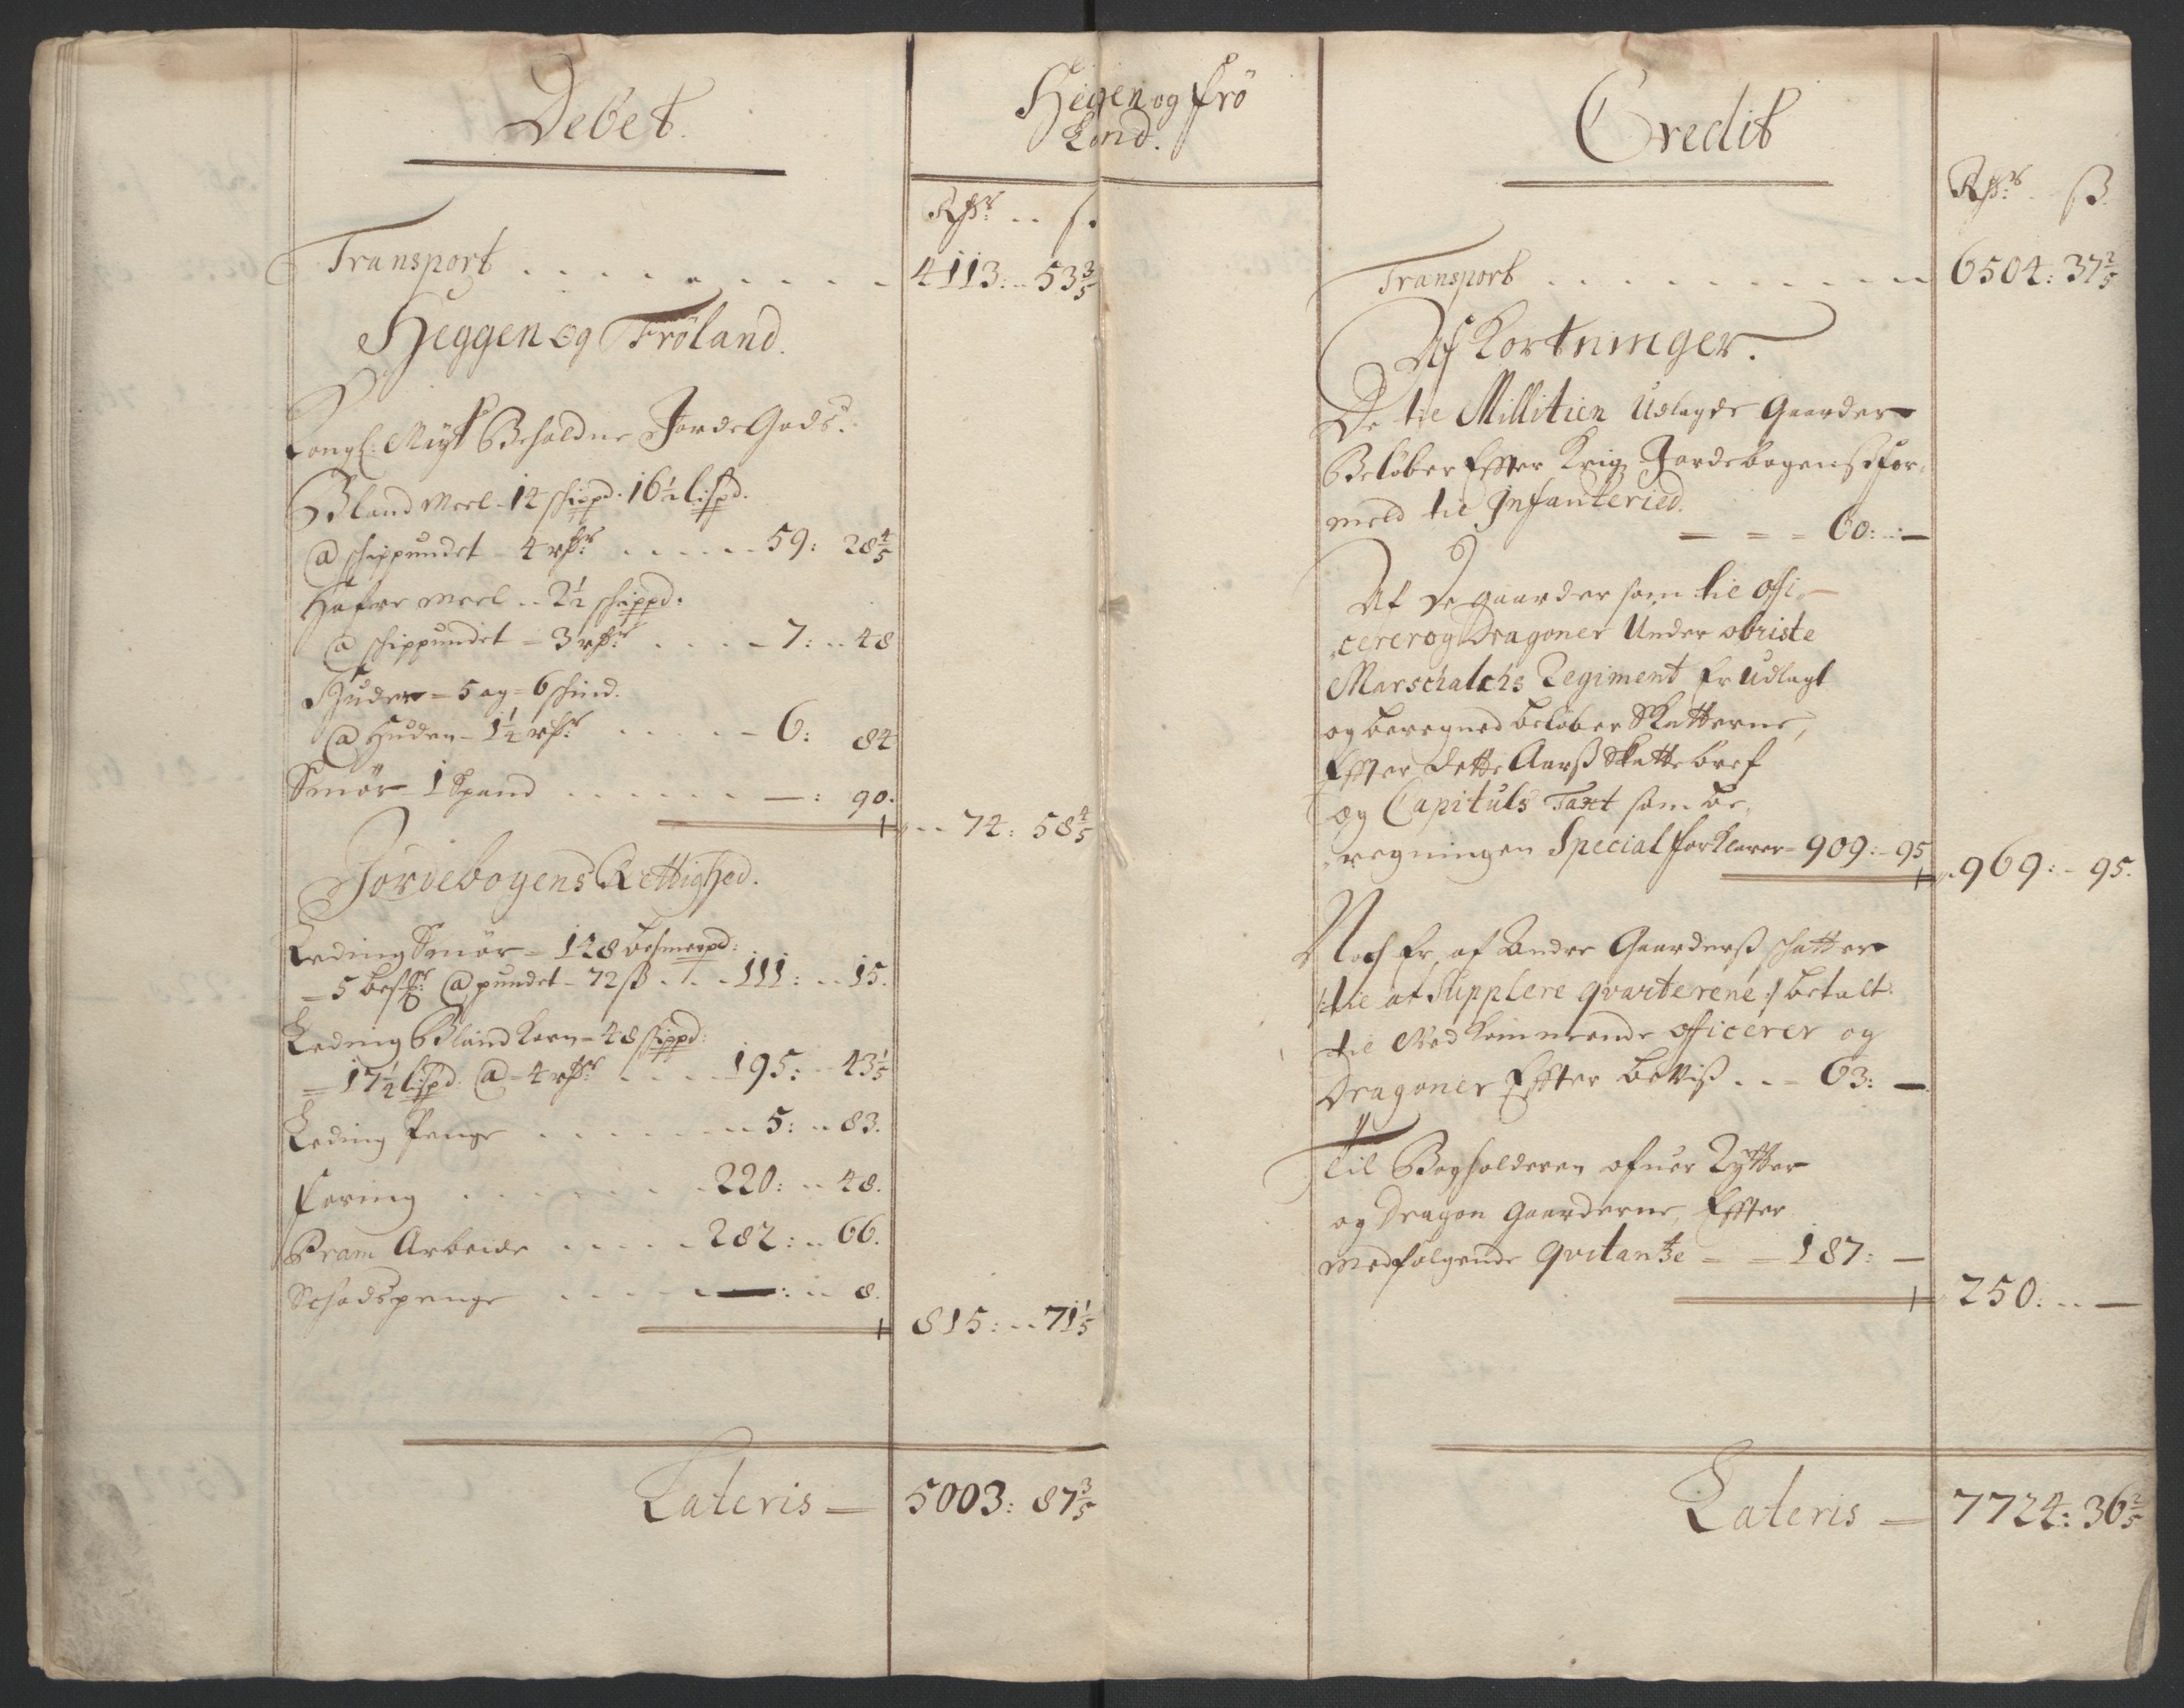 Debet.
Hegen og Frö
Land.
Rdr: .. s.
Transport . . . . . . . . . 4113: .. 53 3/5
Heggen og Fröland.
Kongl: Mayt Beholdne JordeGods.
Bland Meel - 14 schippd. 16 1/2 lispd.
@ schippundet 4 rdr: . . . . . 59: 28 4/5
Hafre meel .. 2 1/2 schippd:
@ schippundet - 3 rdr: . . . . 7: .. 48
Huder = 5 og = 6 schind.
@ Huden - 1 1/4 rdr: . . . . . 6: 84
Smör - 1 Spand . . . . . . — : 90.
.. 74: 58 4/5
Jordebogens Rettighed.
Leding Smör = 148 besmerpd:
= 5 besmr: @ pundet - 72 ß . . . 111: .. 15.
Leding Bland Korn = 48 schippd:
= 17 1/2 lispd. @ - 4 rdr: . . . 195: - 43 1/5
Leding Penge . . . . . . . 5: .. 83.
Foring . . . . . . . 220: .. 48.
Pram Arbeide . . . . . 282: .. 66.
Schadspenge . . . . . — : .. 8.
815: .. 71 1/5
Lateris — 5003: 87 3/5
Credit
Rdr: . ß.
Transport . . . . . . . . . 6504: 37 2/5
Af Kortninger.
De til Millitien Udlagde Gaarder
Beløber Effter Krigs Jordebogens for,
meld til Infanteried.
= = = 60: .. —
Af De gaarder som til offi,
,cerer og Dragoner Under obriste
Marschalchs Regiment Er udlagt
og beregned beløber Skatterne,
Effter dette Aarß Skatte bref
og Capituls Taxt som be,
,regningen Special forklarer = 909: - 95
969: - 95.
Noch Er, af Andre Gaarderß schatter
/: til at Supplere qvarterene :/ betalt
til Vedkommende officerer og
Dragoner Effter beviß . . = 63: —.
Til Bogholderen ofuer Rytter
og Dragon Gaarderne, Effter
medfølgende qvitantze = = 187: —
250: .. —
Lateris = 7724: 36 2/5